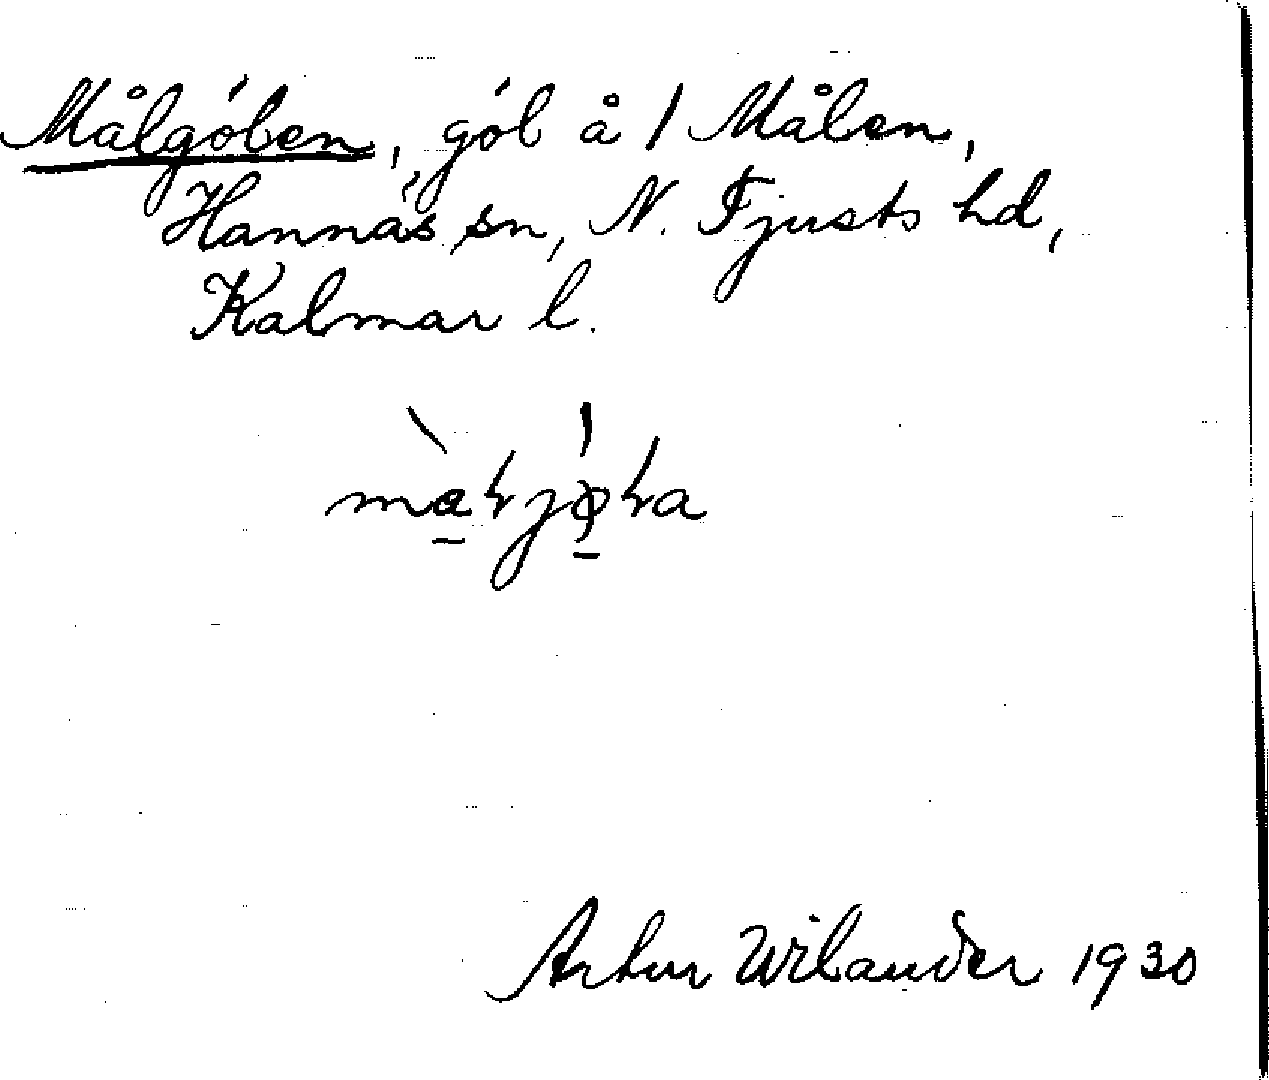 Målgólen, gól å / Målen,
Hannäs sn, N. Tjusts hd,
Kalmar l.
Artur Wilander 1930